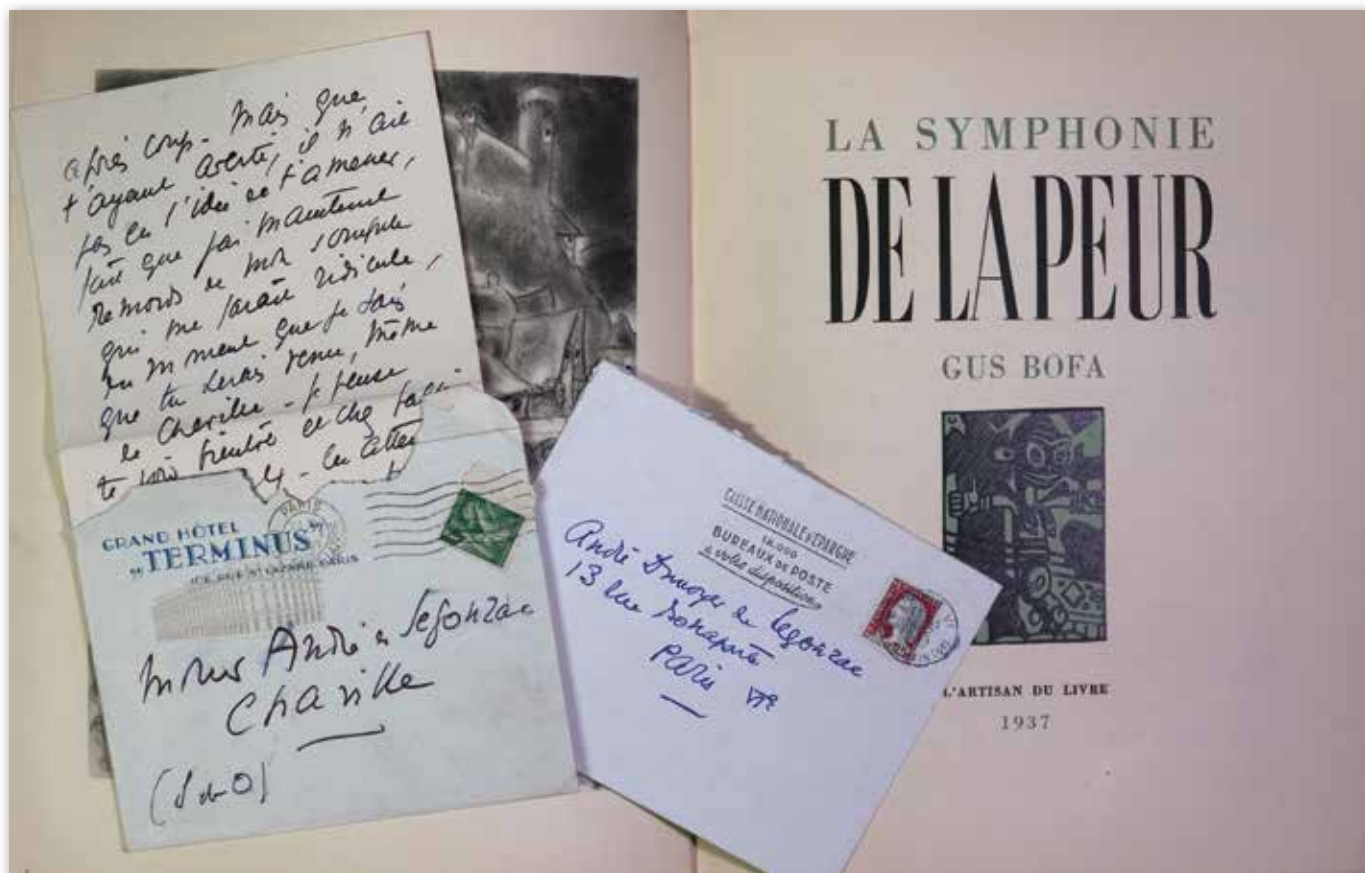 après coup - Mais que,
t'ayant averti, il n'aie
pas eu l'idée de t'amener,
fait que j'ai maintenant
remords de mon scrupule
qui me paraît ridicule,
du moment que je sais
que tu serais venu, même
de Chaville - Je pense
te voir bientôt de chq
PARIS
GRAND HÔTEL
"TERMINUS"
RUE ST LAZARE PARIS
André de Segonzac
Chaville
(S de O)
CAISSE NATIONALE D'ÉPARGNE
18.000
BUREAUX DE POSTE
à votre disposition
André Dunoyer de Segonzac
13 Rue Bonaparte
PARIS VIe
LA SYMPHONIE
DE LA PEUR
GUS BOFA
L'ARTISAN DU LIVRE
1937